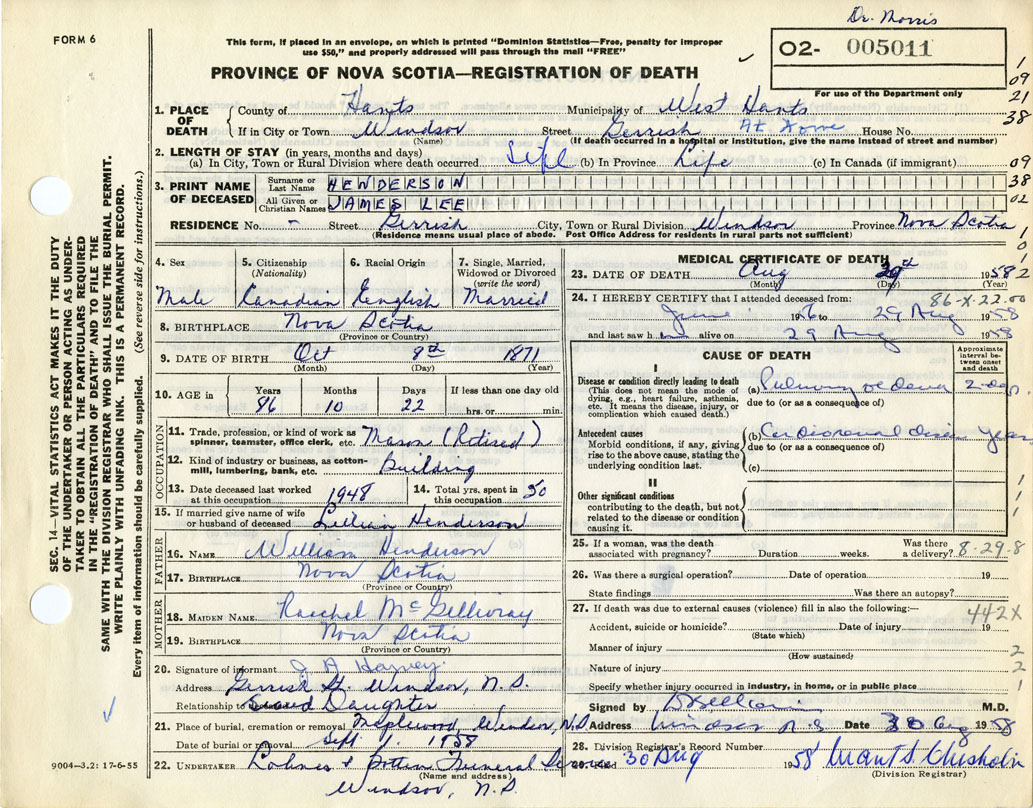 Dr. Morris
FORM 6
This form, if placed in an envelope, on which is printed "Dominion Statistics—Free, penalty for improper
use $50," and properly addressed will pass through the mail "FREE"
O2- 005011
For use of the Department only
PROVINCE OF NOVA SCOTIA—REGISTRATION OF DEATH
1
09
21
38
09
38
02
1
0
1. PLACE OF DEATH
County of Hants Municipality of West Hants
If in City or Town Windsor Street Gerrish At Home House No.
(Name) (If death occurred in a hospital or institution, give the name instead of street and number)
2. LENGTH OF STAY (in years, months and days)
(a) In City, Town or Rural Division where death occurred (b) In Province Life (c) In Canada (if immigrant)
3. PRINT NAME OF DECEASED
Surname or Last Name HENDERSON
All Given or Christian Names JAMES LEE
RESIDENCE No. - Street Gerrish City, Town or Rural Division Windsor Province Nova Scotia
(Residence means usual place of abode. Post Office Address for residents in rural parts not sufficient)
SEC. 14—VITAL STATISTICS ACT MAKES IT THE DUTY
OF THE UNDERTAKER OR PERSON ACTING AS UNDER-
TAKER TO OBTAIN ALL THE PARTICULARS REQUIRED
IN THE "REGISTRATION OF DEATH" AND TO FILE THE
SAME WITH THE DIVISION REGISTRAR WHO SHALL ISSUE THE BURIAL PERMIT.
WRITE PLAINLY WITH UNFADING INK. THIS IS A PERMANENT RECORD.
Every item of information should be carefully supplied. (See reverse side for instructions.)
4. Sex 5. Citizenship (Nationality) 6. Racial Origin 7. Single, Married, Widowed or Divorced (write the word)
Male Canadian English Married
8. BIRTHPLACE Nova Scotia
(Province or Country)
9. DATE OF BIRTH Oct 8th 1871
(Month) (Day) (Year)
10. AGE in Years Months Days If less than one day old
86 10 22 hrs. or min.
OCCUPATION
11. Trade, profession, or kind of work as spinner, teamster, office clerk, etc. Mason (Retired)
12. Kind of industry or business, as cotton-mill, lumbering, bank, etc. Building
13. Date deceased last worked at this occupation 1948
14. Total yrs. spent in this occupation 50
15. If married give name of wife or husband of deceased Lillian Henderson
FATHER
16. NAME William Henderson
17. BIRTHPLACE Nova Scotia
(Province or Country)
MOTHER
18. MAIDEN NAME Raechel McGillivray
19. BIRTHPLACE Nova Scotia
(Province or Country)
20. Signature of informant J A Harvey
Address Gerrish St. Windsor, N.S.
Relationship to deceased Daughter
21. Place of burial, cremation or removal Maplewood, Windsor, N.S.
Date of burial or removal Sept 1. 1958
22. UNDERTAKER Funeral Service
(Name and address)
Windsor, N.S.
9004—3.2: 17-6-55
MEDICAL CERTIFICATE OF DEATH
23. DATE OF DEATH Aug 29th 1958
(Month) (Day) (Year)
2
24. I HEREBY CERTIFY that I attended deceased from: 86-X-22.00
June 1956 to 29 Aug 1958
and last saw h im alive on 29 Aug 1958
CAUSE OF DEATH
Approximate interval between onset and death
I
Disease or condition directly leading to death
(This does not mean the mode of dying, e.g., heart failure, asthenia, etc. It means the disease, injury, or complication which caused death.)
(a) Pulmonary oedema 2 days
due to (or as a consequence of)
Antecedent causes
Morbid conditions, if any, giving rise to the above cause, stating the underlying condition last.
(b) Cardiorenal disease years
due to (or as a consequence of)
(c)
II
Other significant conditions
contributing to the death, but not related to the disease or condition causing it.
1
1
1
25. If a woman, was the death associated with pregnancy? Duration weeks. Was there a delivery? 8-29-8
26. Was there a surgical operation? Date of operation 19
State findings Was there an autopsy?
27. If death was due to external causes (violence) fill in also the following:— 442X
Accident, suicide or homicide? Date of injury 19
(State which)
Manner of injury 2
(How sustained)
Nature of injury 2
Specify whether injury occurred in industry, in home, or in public place 1
Signed by M.D.
Address Windsor N.S Date 30 Aug 1958
28. Division Registrar's Record Number
29. Filed 30 Aug 1958 Chisholm
(Division Registrar)